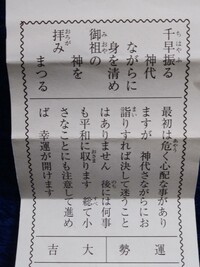 千早振る
神代
ながらに
身を清め
御祖の
神を
拝み
まつる
最初は危く心配な事があり
ますが 神代さながらにお
詣りすれば決して迷うこと
はありません 後には何事
も平和に収ります 総て小
さなことにも注意して進め
ば 幸運が開けます
運勢大吉